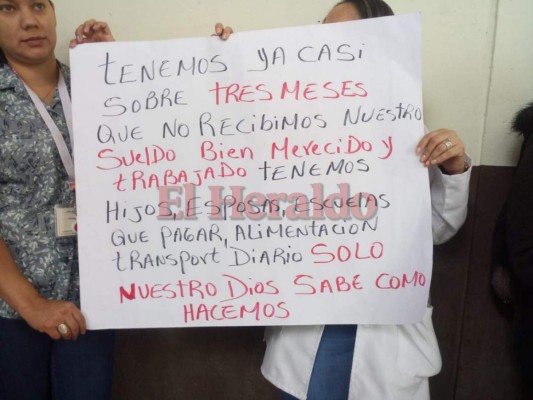 TENEMOS YA CASI
SOBRE TRES MESES
QUE NO RECIBIMOS NUESTRO
SUELDO BIEN MERECIDO Y
TRABAJADO TENEMOS
El Heraldo
HIJOS, ESPOSAS, ESCUELAS
QUE PAGAR, ALIMENTACION
TRANSPORT DIARIO SOLO
NUESTRO DIOS SABE COMO
HACEMOS